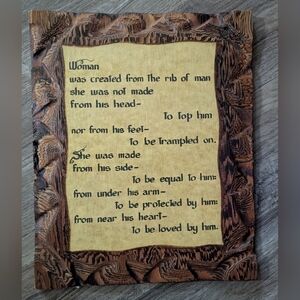 Woman
was created from the rib of man
she was not made
from his head-
To top him
nor from his feet-
To be trampled on.
She was made
from his side-
To be equal to him:
from under his arm-
To be protected by him:
from near his heart-
To be loved by him.